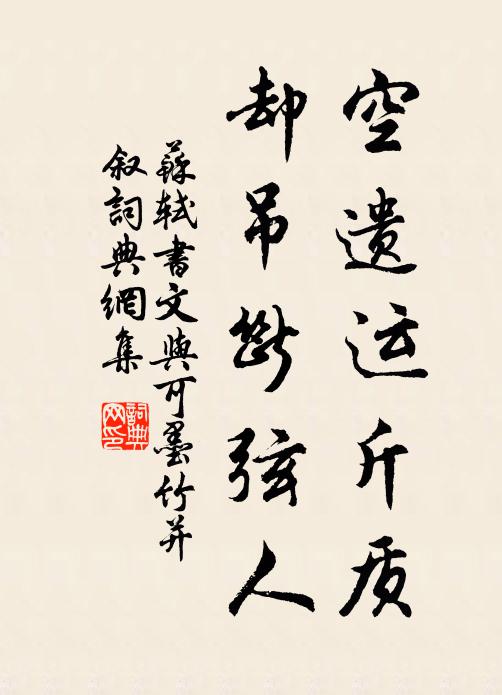 空遗运斤质
却吊断弦人
蘇轼書文與可墨竹并
叙詞典網集
詞典网印